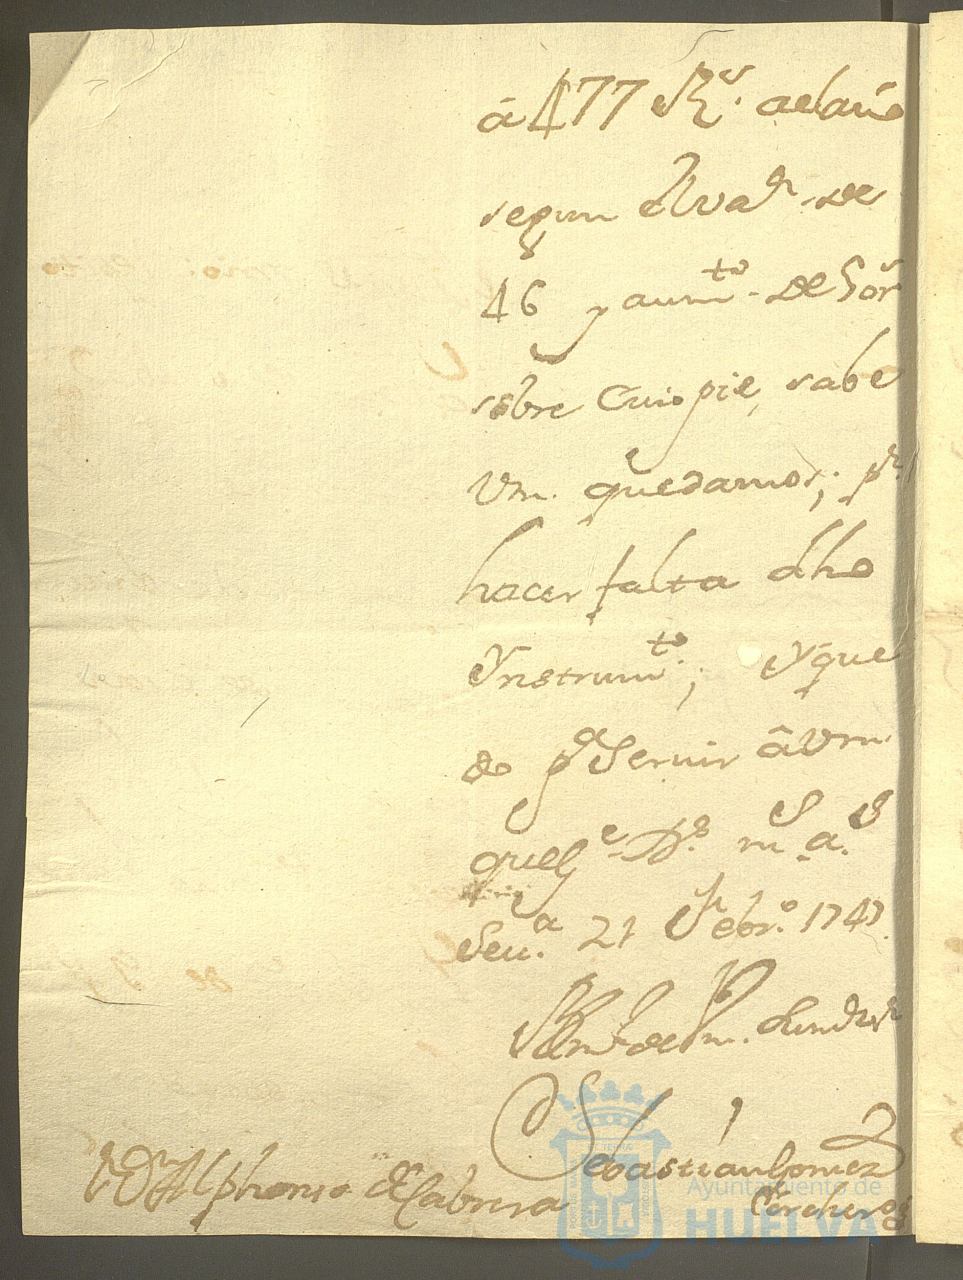 á 477 Rs. del año
segun el Uadr. de
46 y aumto. de Sor
sobre Cuio pie, sabe
Vm. quedamos; pr.
hacer falta dho
Ynstrumto.; Y que
do pa Seruir á Vm
que ge. Ds. ms. as.
Seua. 21 Febro. 1747.
BLm de Vm.
Sebastian Gomez
Corcheros
Sr. Dn. Alphonso de Cabrera
Ayuntamiento de
HUELVA